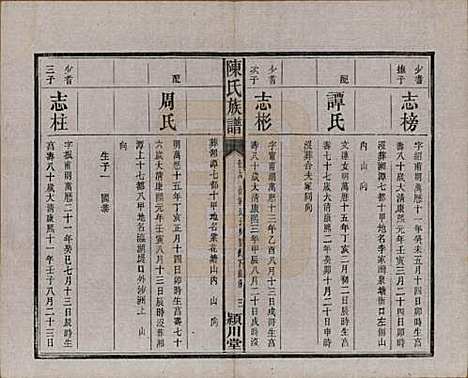 少耆
擴子
志榜
字紹甫明萬曆十一年癸未五月十四日卯時生
壽八十歲大清康熙元年壬寅三月二十四日寅時
沒葬湘潭七都八甲地名李家灣泉塘衝口左側山
內山向
配
譚氏
文達女明萬曆十五年丁亥二月初二日卯時生
壽七十七歲大清康熙二年癸卯十月二十日寅時
沒葬合夫冢同向
少耆
次子
志彬
字實甫明萬曆十三年乙酉八月十二日戌時生
壽八十歲大清康熙三年甲辰八月二十日亥時沒
葬湖潭七都十甲地名棠花塘山內山向
陳氏族譜
潁川堂
配
周氏
明萬曆十五年丁亥正月十四日卯時生壽七十
六歲大清康熙元年壬寅八月十三日辰時沒葬湘
潭上十七都八甲地名臨湖堤口外沙洲上山
向
生子一
國棻
少耆
三子
志柱
字振甫明萬曆二十一年癸巳七月十三日寅時生
壽八十歲大清康熙十一年壬子八月二十三日